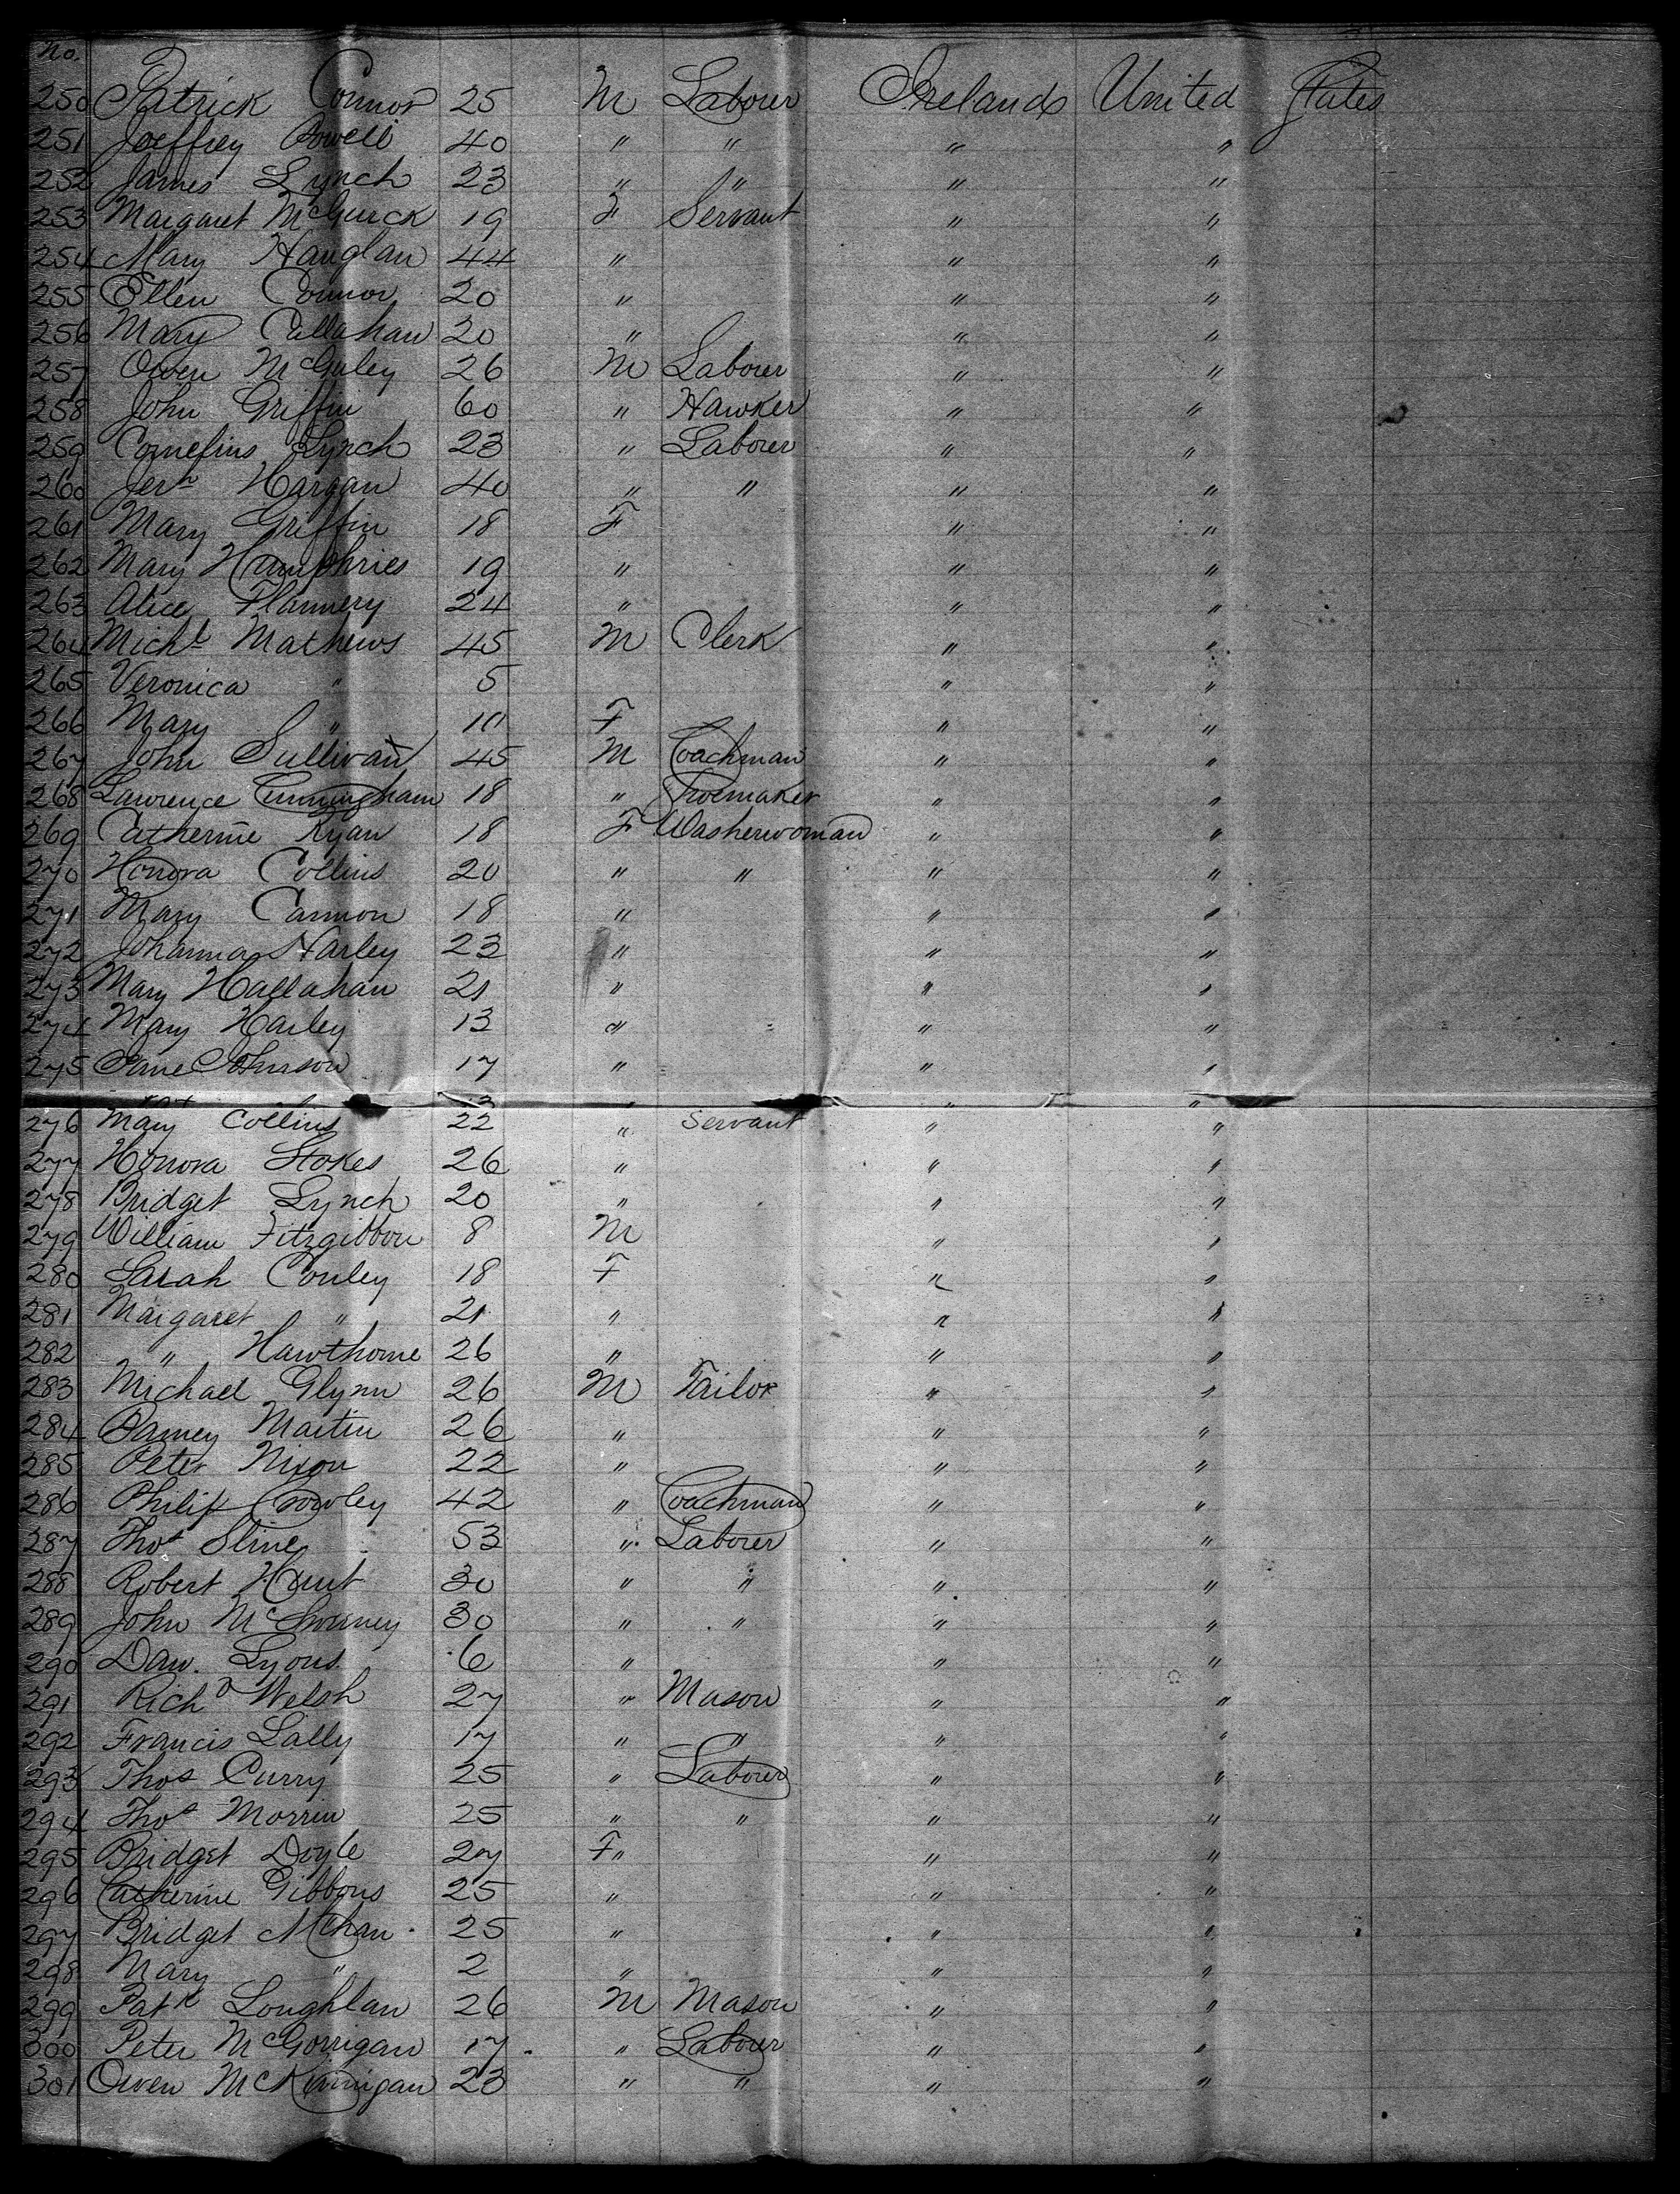 No.
250 Patrick Connor 25 M Laborer Ireland United States
251 Joeffrey Powell 40 " " " "
252 James Lynch 23 " " " "
253 Margaret McGurck 19 F Servant " "
254 Mary Hanglan 44 " " "
255 Ellen Connor 20 " " "
256 Mary Callahan 20 " " "
257 Owen McGuley 26 M Laborer " "
258 John Griffin 60 " Hawker " "
259 Cornelius Lynch 23 " Laborer " "
260 Jerh Hargan 40 " " " "
261 Mary Griffin 18 F " "
262 Mary Humphries 19 " " "
263 Alice Flannery 24 " " "
264 Michl Mathews 45 M Clerk " "
265 Veronica " 5 " "
266 Mary " 10 F " "
267 John Sullivan 45 M Coachman " "
268 Lawrence Cunningham 18 " Shoemaker " "
269 Catherine Ryan 18 F Washerwoman " "
270 Honora Collins 20 " " " "
271 Mary Cannon 18 " " "
272 Johanna Harley 23 " " "
273 Mary Hallahan 21 " " "
274 Mary Harley 13 " " "
275 Jane Johnson 17 " " "
276 Mary Collins 22 " Servant " "
277 Honora Stokes 26 " " "
278 Bridget Lynch 20 " " "
279 William Fitzgibbon 8 M " "
280 Sarah Conley 18 F " "
281 Margaret " 21 " " "
282 " Hawthorne 26 " " "
283 Michael Glynn 26 M Tailor " "
284 Barney Martin 26 " " "
285 Peter Nixon 22 " " "
286 Philip Crowley 42 " Coachman " "
287 Thos Sline 53 " Laborer " "
288 Robert Hunt 30 " " " "
289 John McSweeney 30 " " " "
290 Dan. Lyons 6 " " "
291 Richd Welsh 27 " Mason " "
292 Francis Lally 17 " " " "
293 Thos Curry 25 " Laborer " "
294 Thos Morrin 25 " " " "
295 Bridget Doyle 27 F " " "
296 Catherine Gibbons 25 " " "
297 Bridget Mchan 25 " " "
298 Mary " 2 " " "
299 Patk Loughlan 26 M Mason " "
300 Peter McGorrigan 17 " Laborer " "
301 Owen McKinnigan 23 " " " "